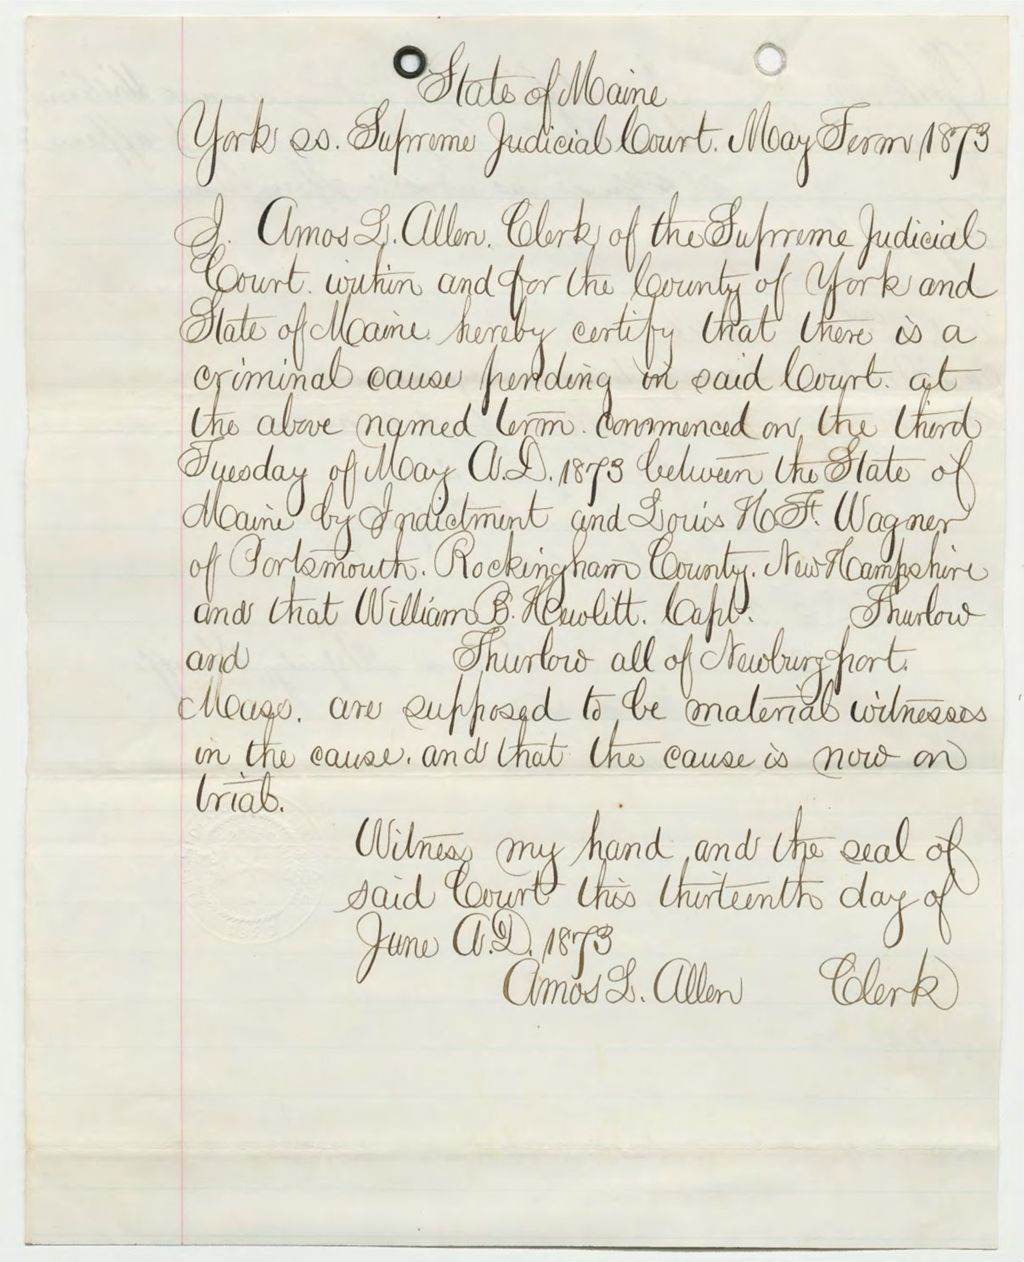 State of Maine
York ss. Supreme Judicial Court. May Term 1873
I. Amos L. Allen. Clerk of the Supreme Judicial
Court. within and for the County of York and
State of Maine. hereby certify that there is a
criminal cause pending in said Court. at
the above named term. commenced on the third
Tuesday of May A.D. 1873 between the State of
Maine by Indictment and Louis H. F. Wagner
of Portsmouth. Rockingham County. New Hampshire
and that William B. Hewlitt. Capt. Thurlow
and Thurlow all of Newburyport.
Mass. are supposed to be material witnesses
in the cause. and that the cause is now on
trial.
Witness my hand and the seal of
said Court this thirteenth day of
June A.D. 1873
Amos L. Allen Clerk